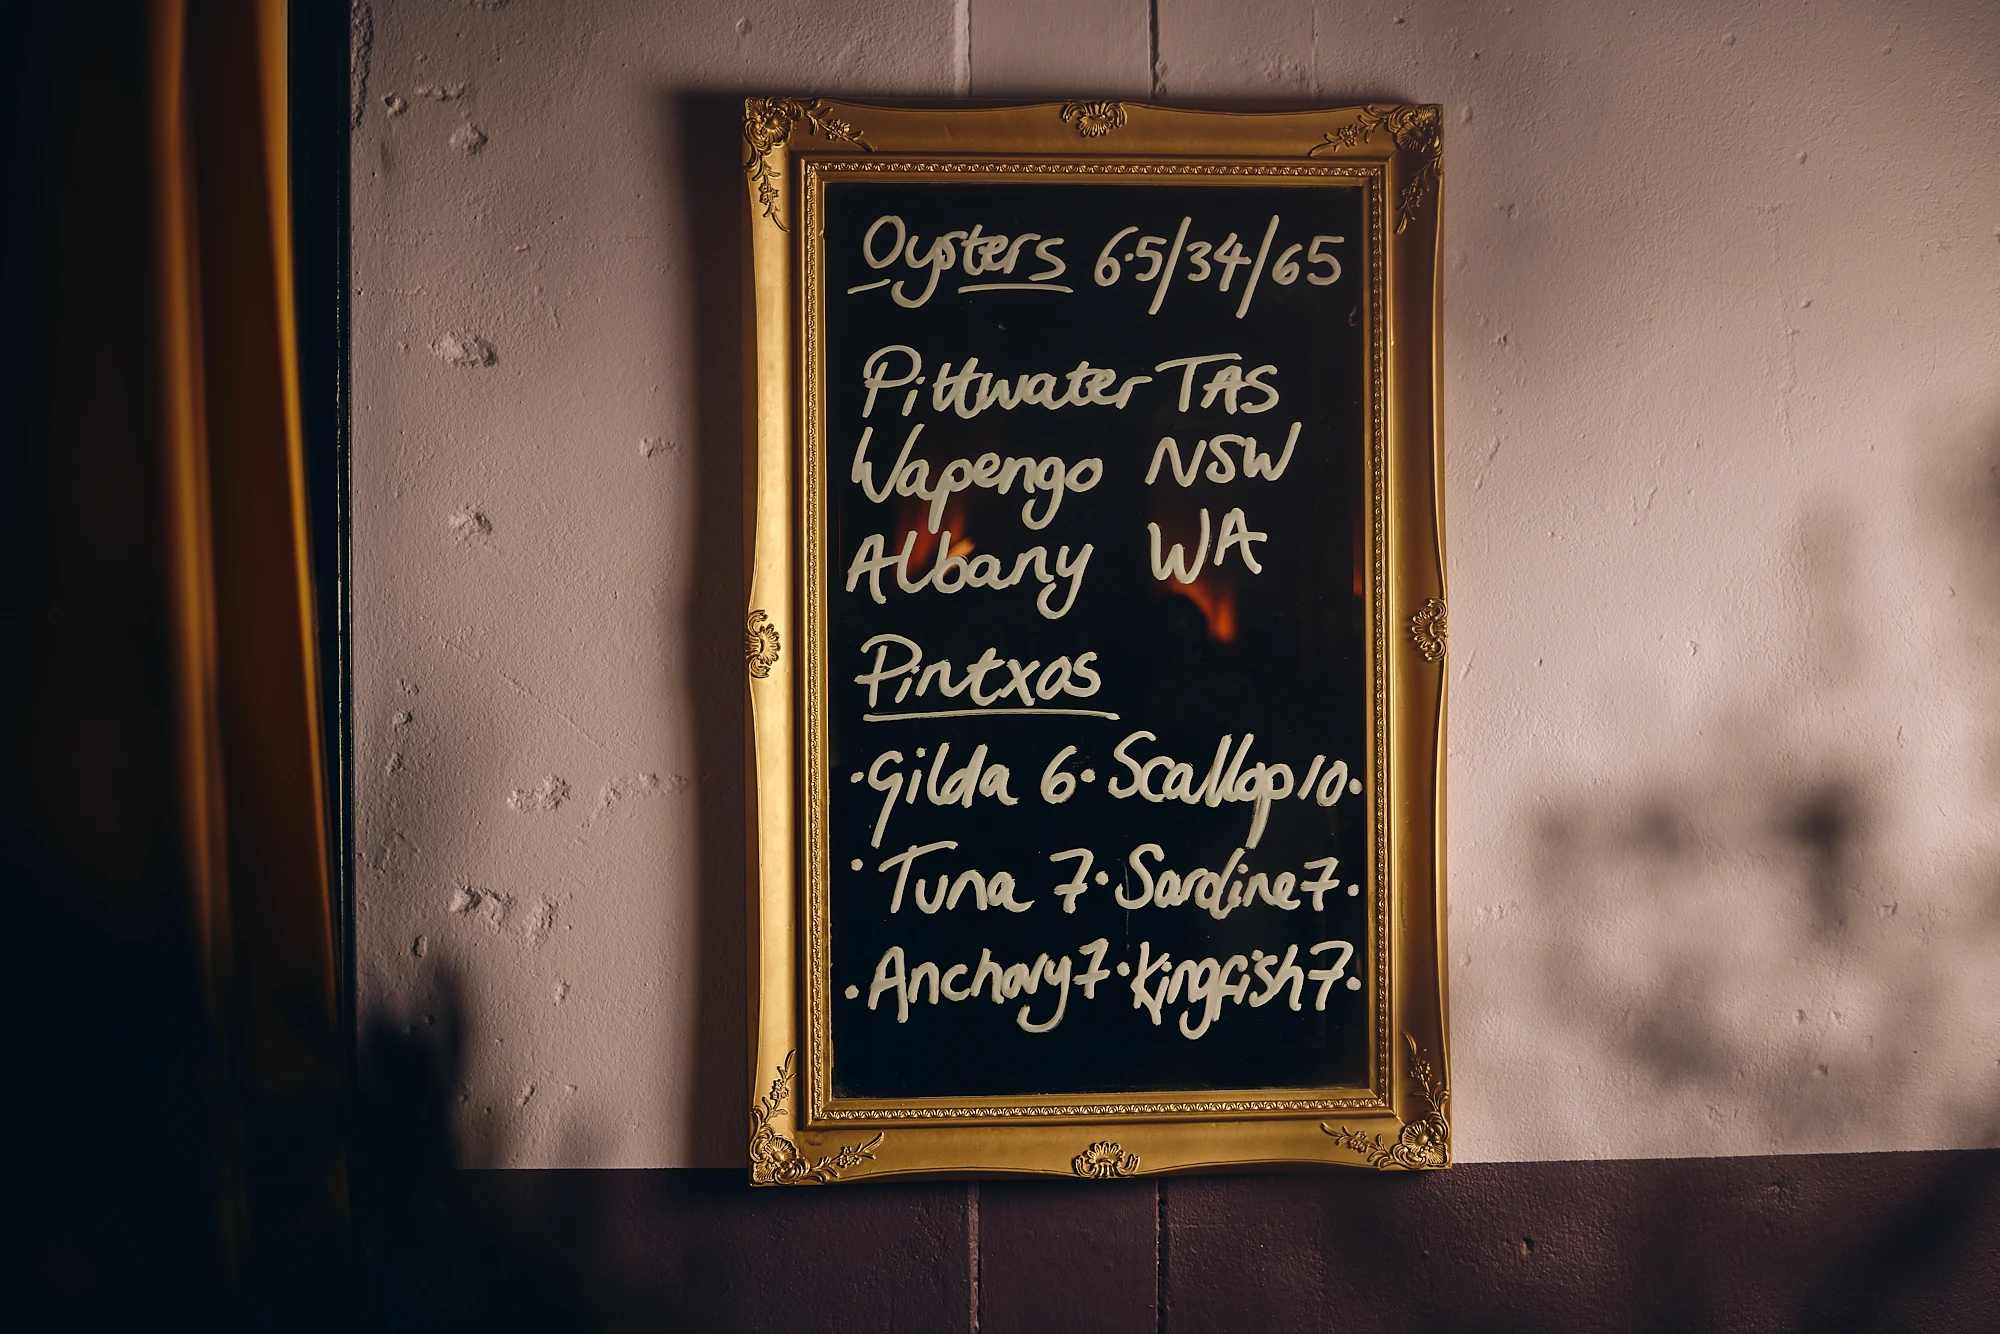 Oysters 6.5/34/65
Pittwater TAS
Wapengo NSW
Albany WA
Pintxos
·Gilda 6·Scallop 10·
·Tuna 7·Sardine 7·
·Anchovy 7·Kingfish 7·